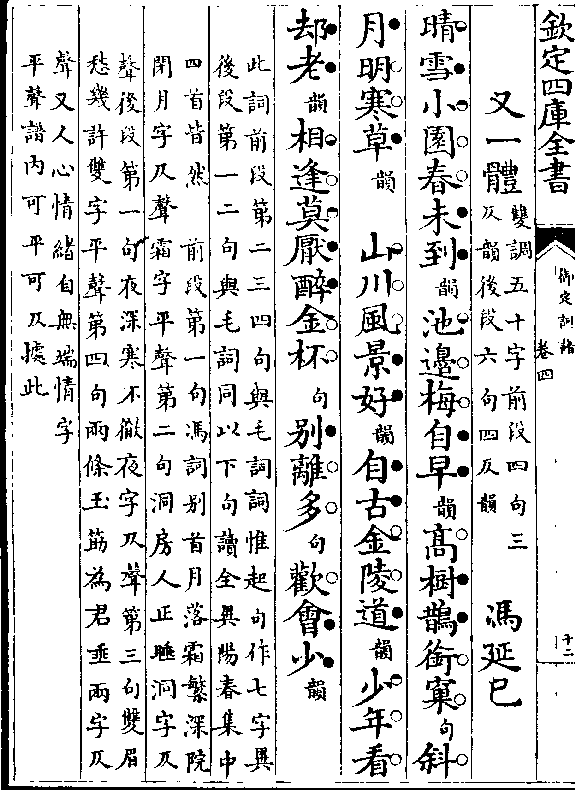 欽定四庫全書
御定詞譜
卷四
十二
又一體
雙調五十字前段四句三
仄韻後段六句四仄韻
馮延巳
晴雪小園春未到韻池邊梅自早韻高樹鵲銜窠句斜
月明寒草韻 山川風景好韻自古金陵道韻少年看
却老韻相逢莫厭醉金杯句别離多句歡會少韻
此詞前段第二三四句與毛詞詞惟起句作七字異
後段第一二句與毛詞同以下句讀全異陽春集中
四首皆然 前段第一句馮詞别首月落霜繁深院
閉月字仄聲霜字平聲第二句洞房人正睡洞字仄
聲後段第一句夜深寒不徹夜字仄聲第三句雙眉
愁幾許雙字平聲第四句兩條玉筯為君垂兩字仄
聲又人心情緒自無端情字
平聲譜内可平可仄據此